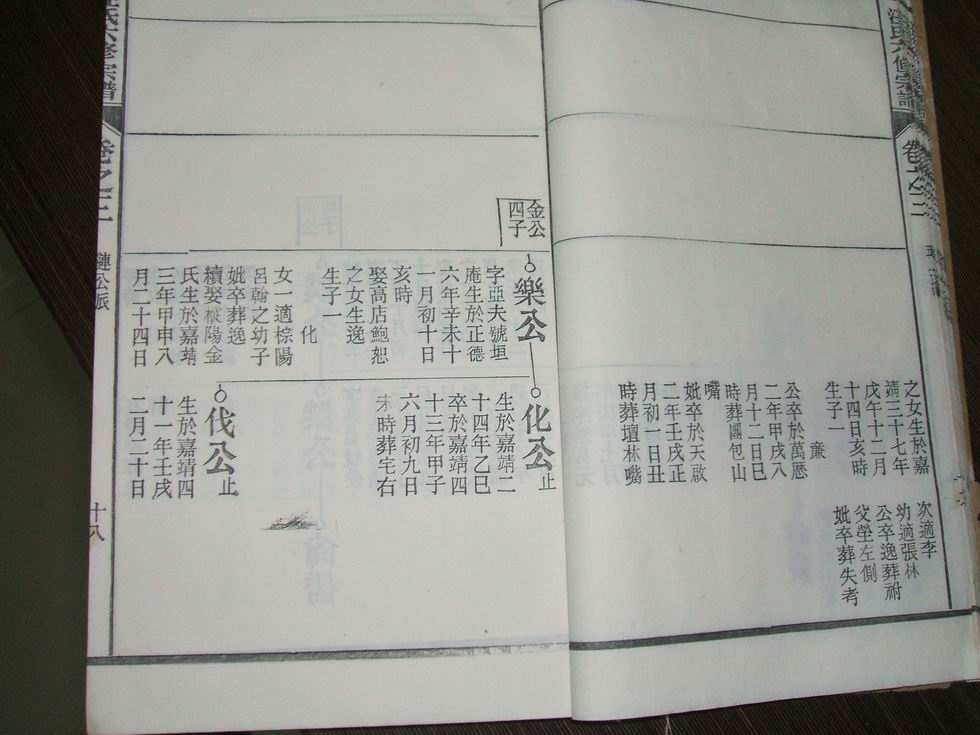 汪氏六修宗譜
卷之二
次適李
幼適張林
公卒逸葬祔
父塋左側
妣卒葬失考
之女生於嘉
靖三十七年
戊午十二月
十四日亥時
生子一
廉
公卒於萬厯
二年甲戌八
月十二日巳
時葬團包山
嘴
妣卒於天啟
二年壬戌正
月初一日丑
時葬壇林嘴
金公
四子
樂公
字亞夫號垣
庵生於正德
六年辛未十
一月初十日
亥時
娶高店鮑恕
之女生逸
生子一
化
女一適棕陽
呂翰之幼子
妣卒葬逸
續娶樅陽金
氏生於嘉靖
三年甲申八
月二十四日
化公止
生於嘉靖二
十四年乙巳
卒於嘉靖四
十三年甲子
六月初九日
未時葬宅右
伐公止
生於嘉靖四
十一年壬戌
二月二十日
氏六修宗譜
卷之二
璉公派
十八